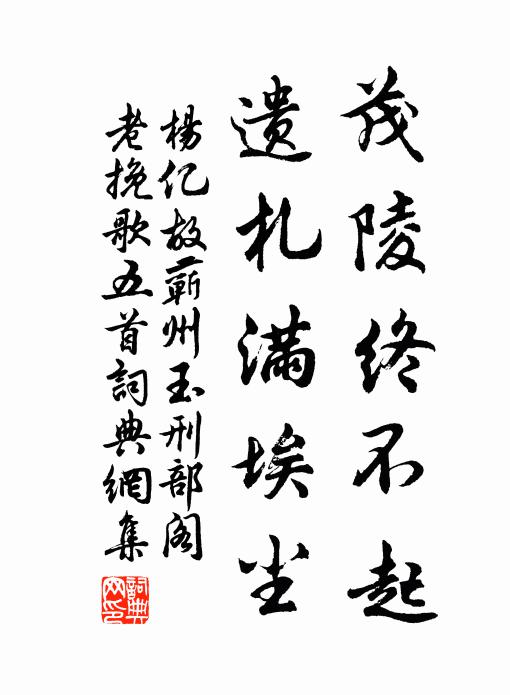 茂陵終不起
遺札滿埃尘
楊亿故蘄州玉刑部阁
老挽歌五首詞典網集
詞典网印